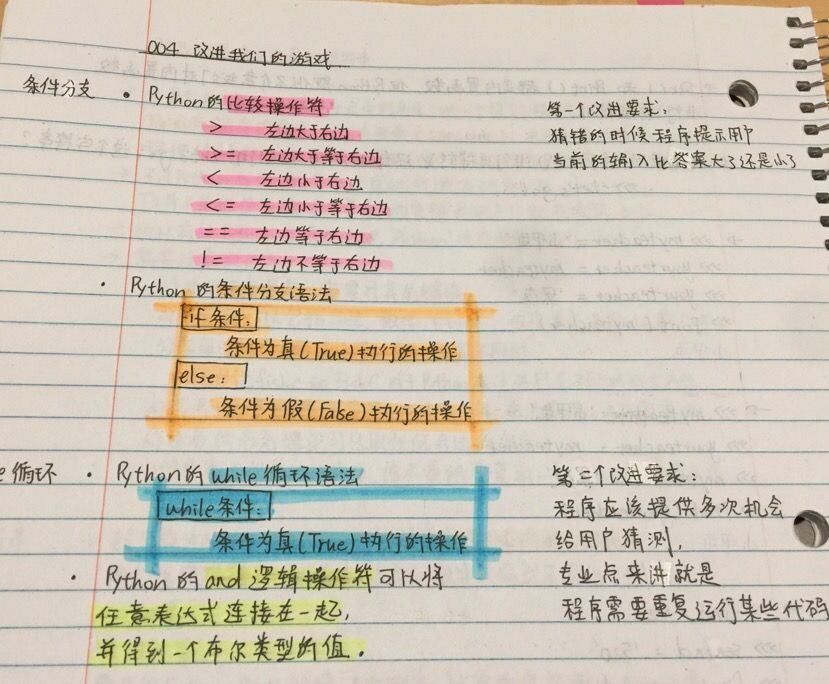 004 改进我们的游戏
条件分支 · Python的比较操作符
> 左边大于右边
>= 左边大于等于右边
< 左边小于右边
<= 左边小于等于右边
== 左边等于右边
!= 左边不等于右边
第一个改进要求:
猜错的时候程序提示用户
当前的输入比答案大了还是小了
· Python的条件分支语法
if 条件:
条件为真(True)执行的操作
else:
条件为假(False)执行的操作
循环 · Python的while循环语法
while条件:
条件为真(True)执行的操作
· Python的and逻辑操作符可以将
任意表达式连接在一起,
并得到一个布尔类型的值。
第二个改进要求:
程序应该提供多次机会
给用户猜测,
专业点来讲就是
程序需要重复运行某些代码